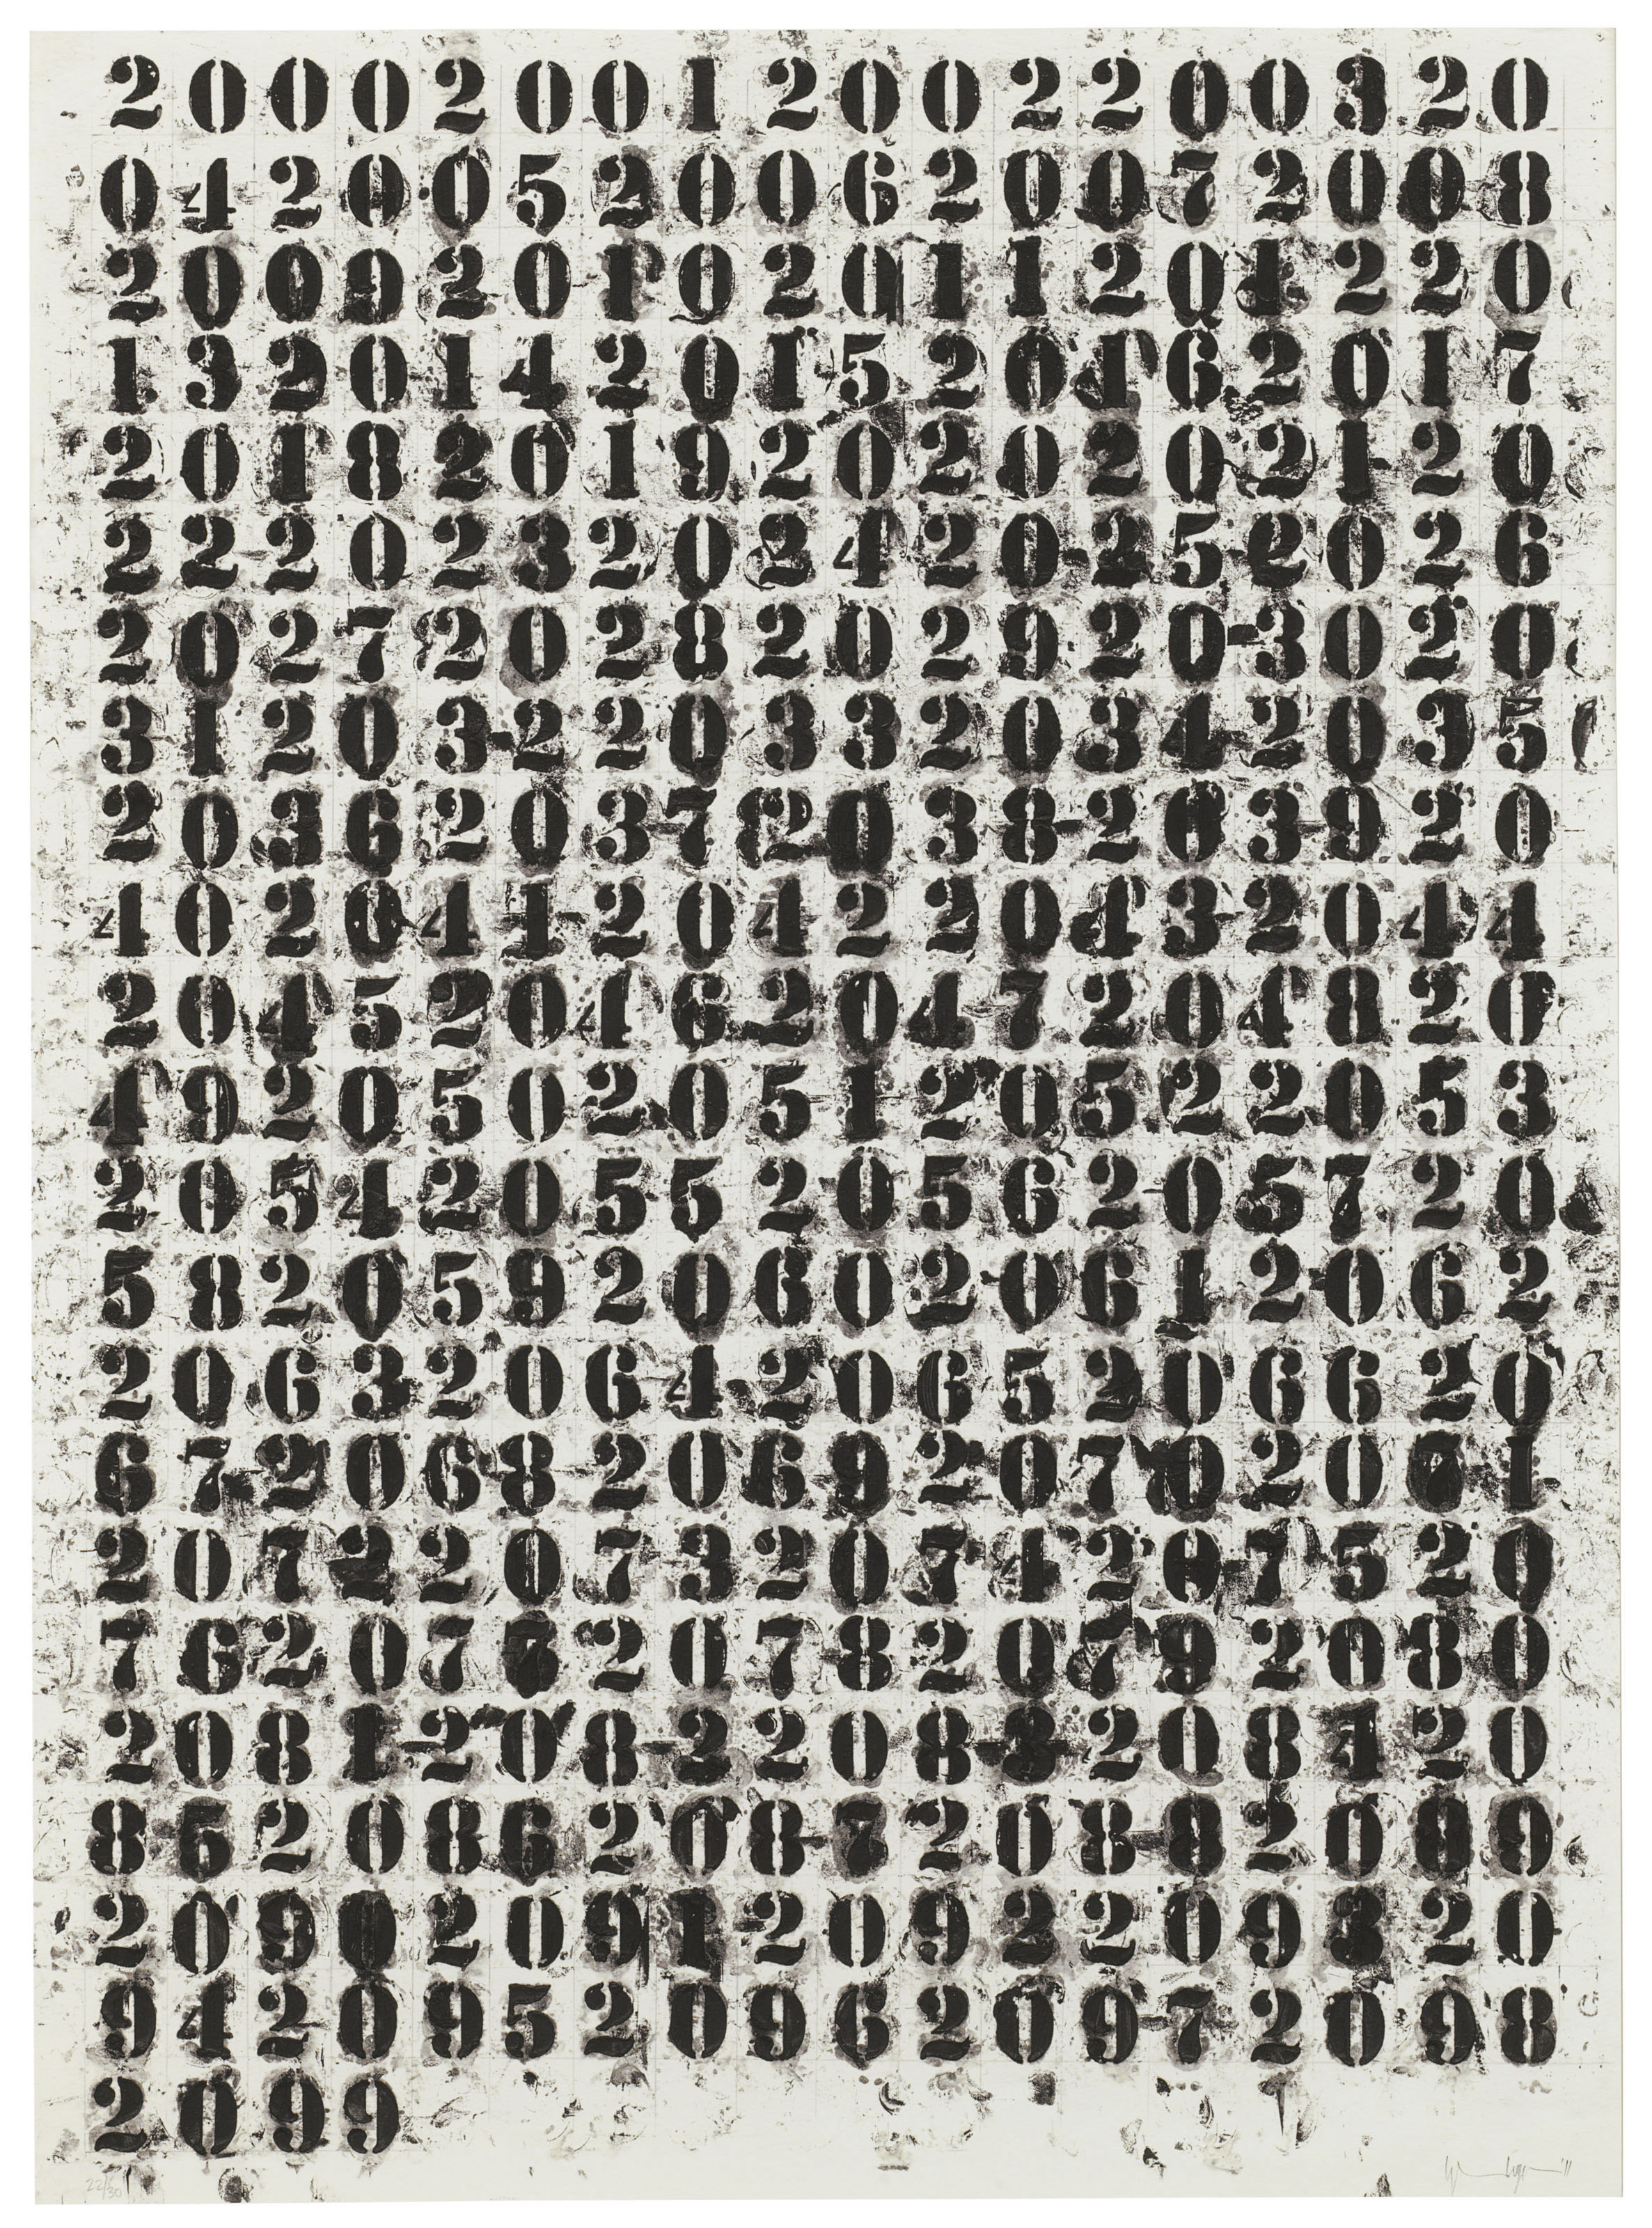 200020012002200320
042005200620072008
200920102011201220
132014201520162017
201820192020202120
222023202420252026
202720282029203020
312032203320342035
203620372038203920
402041204220432044
204520462047204820
492050205120522053
205420552056205720
582059206020612062
206320642065206620
672068206920702071
207220732074207520
762077207820792080
208120822083208420
852086208720882089
209020912092209320
942095209620972098
2099
22/30